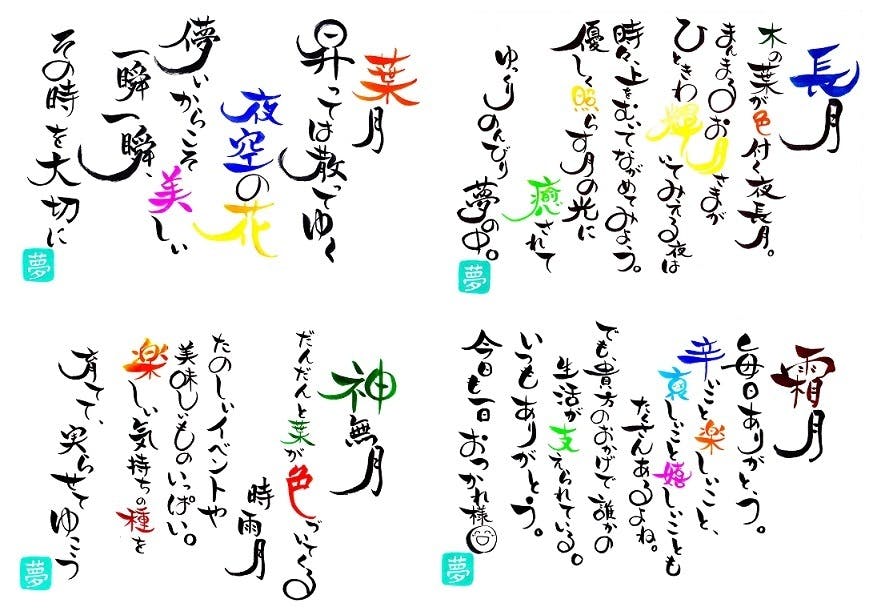 葉月
昇っては散ってゆく
夜空の花
儚いからこそ美しい
一瞬一瞬、
その時を大切に
夢
長月
木の葉が色付く夜長月。
まんまるのお月さまが
ひときわ輝いてみえる夜は
時々、上をむいてながめてみよう。
優しく照らす月の光に
癒されて
ゆっくりのんびり夢の中。
夢
神無月
だんだんと葉が色づいてくる
時雨月
たのしいイベントや
美味しいものいっぱい。
楽しい気持ちの種を
育てて、実らせてゆこう
夢
霜月
毎日ありがとう。
辛いこと楽しいこと、
哀しいこと嬉しいことも
たくさんあるよね。
でも貴方のおかげで誰かの
生活が支えられている。
いつもありがとう。
今日も一日おつかれ様
夢